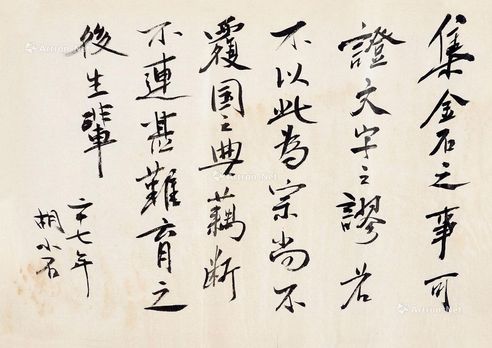 集金石之事可
證文字之謬若
不以此為宗尚不
覆国之典藕断
不連甚難育之
後生輩
二十七年
胡小石